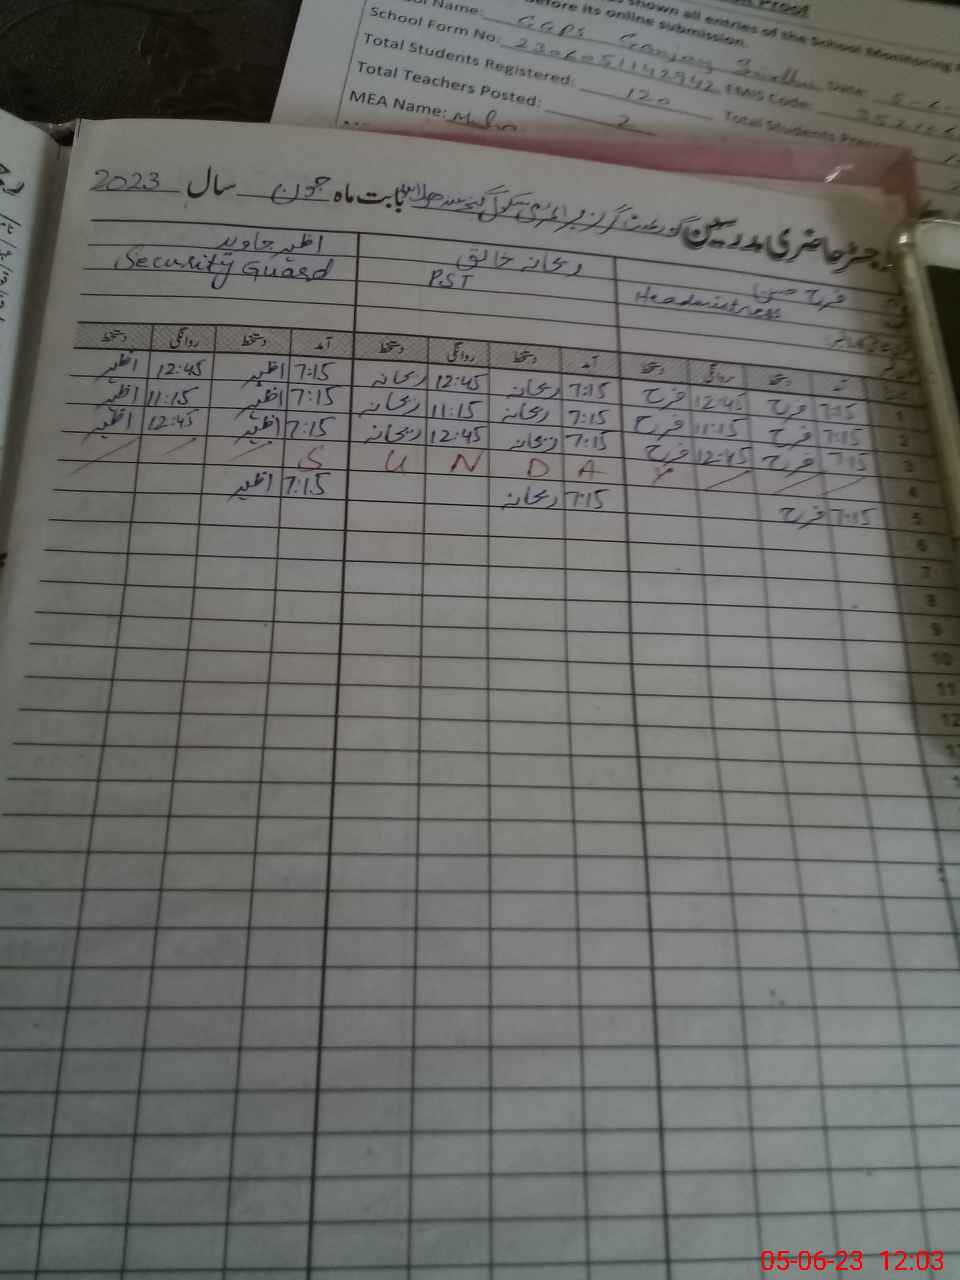 shown all entries of the School Monitoring
before its online submission.
School Form No: 2306051142942 EMIS Code:
Total Students Registered: 120
Total Teachers Posted: 2
MEA Name:
رجسٹر حاضری مدرسین گورنمنٹ گرلز پرائمری سکول بابت ماہ جون سال 2023
ریحانہ خالق اظہر جاوید
Headmistress P.S.T Security Guard
آمد دستخط روانگی دستخط آمد دستخط روانگی دستخط آمد دستخط روانگی دستخط
1 7:15 فرح 12:45 فرح 7:15 ریحانہ 12:45 ریحانہ 7:15 اظہر 12:45 اظہر
2 7:15 فرح 11:15 فرح 7:15 ریحانہ 11:15 ریحانہ 7:15 اظہر 11:15 اظہر
3 7:15 فرح 12:45 فرح 7:15 ریحانہ 12:45 ریحانہ 7:15 اظہر 12:45 اظہر
4 S U N D A Y
5 7:15 فرح 7:15 ریحانہ 7:15 اظہر
6
7
8
9
10
11
05-06-23 12:03